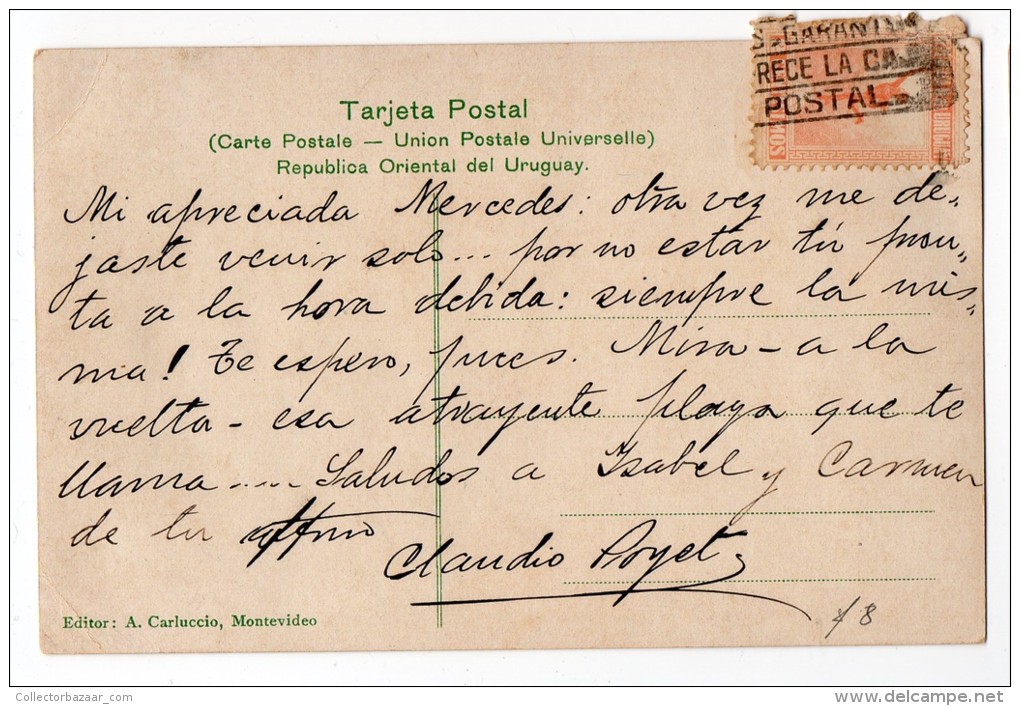 S. GARANTIAS
RECE LA CAJ
POSTAL
Tarjeta Postal
(Carte Postale — Union Postale Universelle)
Republica Oriental del Uruguay.
Mi apreciada Mercedes: otra vez me de-
jaste venir solo... por no estar tú pron-
ta a la hora debida: siempre la mis-
ma! Te espero, pues. Mira - a la
vuelta - esa atrayente playa que te
llama..... Saludos a Isabel y Carmen
de tu affmo
Claudio Poyet
Editor: A. Carluccio, Montevideo
8
Collectorbazaar_com
www.delcampe.net